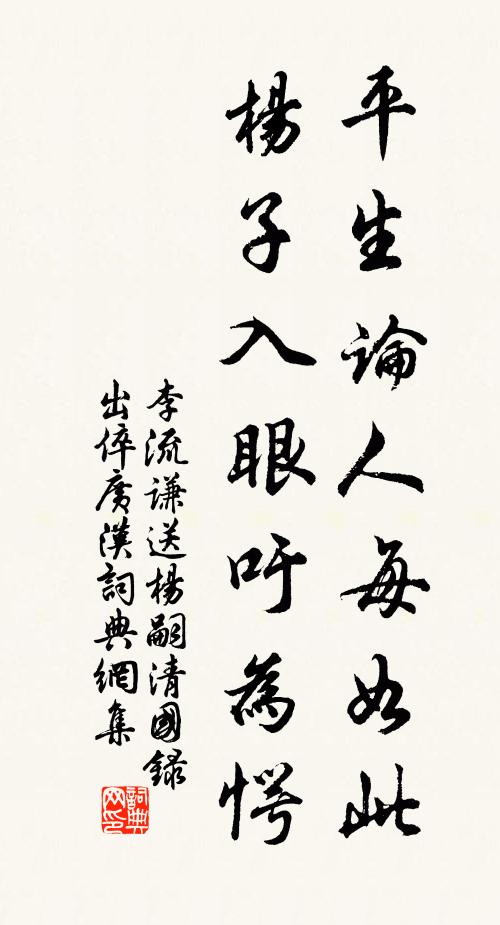 平生論人每如此
楊子入眼吁為愕
李流謙送楊嗣清國錄
出倅廣漢詞典網集
詞典網印